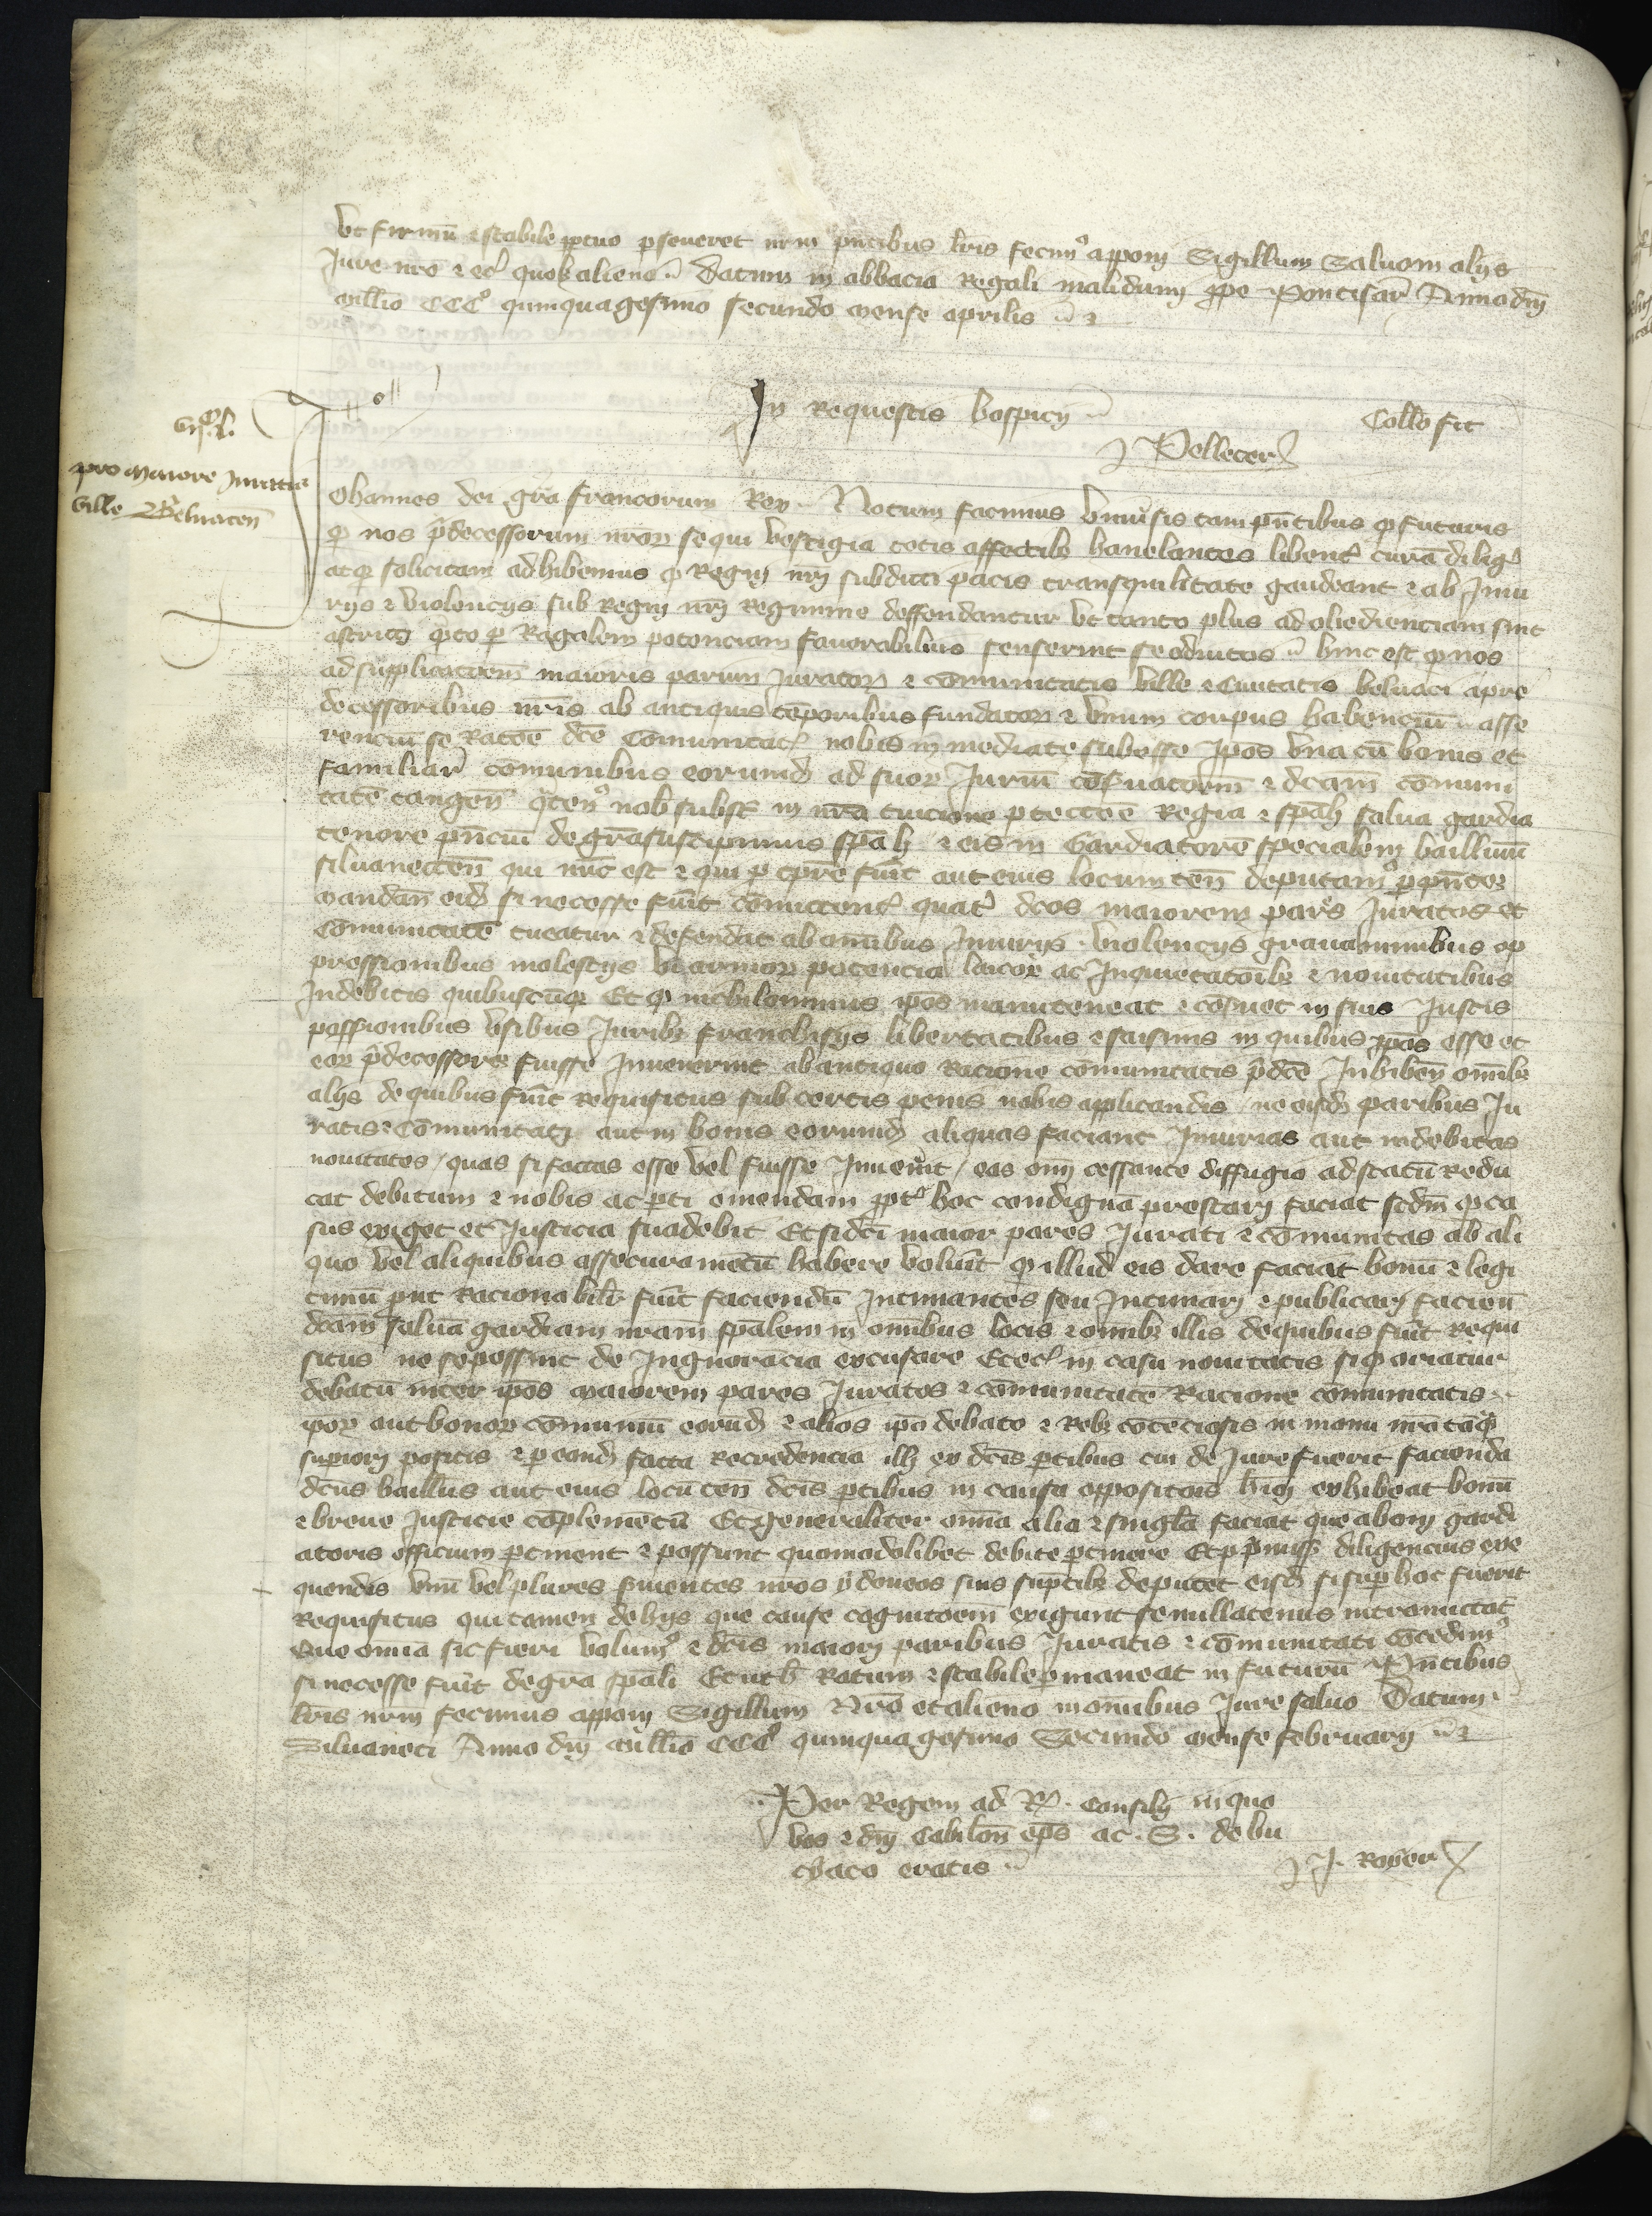 ut firmū ⁊ stabile ꝑpetuo ꝑseueret nrm̄ pn̄tibus lr̄is fecimꝰ apponi Sigillum Saluo in alijs
Jure nr̄o ⁊ et quolꝫ alieno Datum in abbacia Regali malidunī prope Pontisar̄ Anno dn̄i
millīo CCCº quinquagesimo secundo mense aprilis
In Requestis hospicij
Collo fit
J Pellecer̄
pro maiore Juratis
ville Beluacen̄
Johannes dei gr̄a francorum Rex Notum facimus vniuersis tam pn̄tibus ꝙ futuris
ꝙ nos p̄decessorum nr̄oꝝ sequi vestigia totis affectibꝫ hanelantes libent̉ curā dilig̉
atqꝫ solicitam adhibemus ꝙ Regni nr̄i subditi pacis transquilitate gaudeant ⁊ ab Juiu
rijs ⁊ violencijs sub Regni nr̄i Regimine deffendantur ut tanto plus ad obedienciam sint
astricti q̄to ꝑ Regalem potenciam fauorabilius senserint se adiutos hinc est ꝙ nos
ad supplicac̄oem maioris parium Juratoꝝ ⁊ cōmunitatis ville ⁊ Ciuitatis beluaci a pre
decessoribus nr̄is ab antiquis tēporibus fundatoꝝ ⁊ vnum corpus habenciū asse
renciū se Rac̄oe dc̄e Cōmunitat̉ nobis in mediate subesse Jpos vna cū bonis et
familiar̄ cōmunibus eorumdꝫ ad suoꝝ Juriū cōseruac̄oem ⁊ dc̄am cōmuni
tatē tangen̄ q̄tenꝰ nob̄ subsūt in nr̄a tuicione ꝓtecc̄oe Regia ⁊ spāli salua gardia
tenore pn̄ciū de gr̄a suscipimus spāli ⁊ eis in Gardiatorē specialem baillinū
siluanecten̄ qui nūc est ⁊ qui ꝑ tꝑre fūit aut eius locum ten̄ deputamꝰ ꝑ pn̄tes
mandan̄ eidꝫ si necesse fūit cōmittent̉ quat̉ dc̄os maiorem pares Juratos et
Cōmunitatē tueatur ⁊ defendat ab om̄ibus Jniurijs violencijs grauaminibus op
pressionibus molestijs vi armoꝝ potencia laicoꝝ ac Jnquietac̄oibꝫ ⁊ nouitatibus
Jndebitis quibuscūqꝫ Et ꝙ nichilominus ipōs manuteneat ⁊ cōseruet in suis Justis
possionibus vsibus Juribꝫ franchisijs libertatibus ⁊ saisinis in quibus ipōs esse et
eoꝝ p̄decessores fuisse Juuenerint ab antiquo Racione cōmunitatis p̄dc̄e Jnhiben̄ om̄ibꝫ
alijs de quibus fūit Requisitus sub certis penis nobis applicandis ne eisdꝫ paribus Ju
ratis ⁊ Cōmunitati aut in bonis eorumdꝫ aliquas faciant Jniurias aut indebitas
nouitates quas si factas esse vel fuisse Jnuenerit eas om̄i cessante diffugio ad statū Redu
cat debitum ⁊ nobis ac ꝑti emendam ꝓpt̉ hoc condignā prestari faciat scdm̄ ꝙ ca
sus exiget et Justicia suadebit Et si dc̄i maior pares Jurati ⁊ cōmunitas ab ali
quo vel aliquibus assecuramētū habere volūit ꝙ illud eis dare faciat bonū ⁊ legi
timū ꝓut Racionabilr̄ fūit faciendū Jntimantes seu Jntimari ⁊ publicari facien̄
dc̄am saluā gardiam nr̄am spālem in om̄ibus locis ⁊ om̄ibꝫ illis de quibus fūit Requi
situs ne se possint de Jngnorācia excusare Et et̉ in casu nouitatis si ꝙ oriatur
debatū inter ipōs maiorem pares Juratos ⁊ cōmunitatē Racione cōmunitatis
ipōꝝ aut bonoꝝ cōmuniū eorudꝫ ⁊ alios ipō debato ⁊ Rebꝫ cōteciosis in manu nr̄a tāqꝫ
suꝑiori positis ⁊ ꝑ eandꝫ facta Recredencia illi ex dc̄is ꝑtibus cui de Jure fuerit facienda
dc̄us baillius aut eius locū ten̄ dc̄is ꝑtibus in causa oppositōis hm̄ōi exhibeat bonū
⁊ breue Justicie cōplemētū Et generaliter om̄ia alia ⁊ singl̄a faciat que ad hm̄ōi gardi
atoris officium ꝑtinent ⁊ possunt quomodolibet debite ꝑtinere Et ꝓ p̄miss̄ diligencius exe
quendis vnū vel plures ẜuientes nr̄os ydoneos suis sūptibꝫ deputet eisdꝫ si suꝑ hoc fuerit
Requisitus qui tamen de hijs que cause cognitoem exigunt se nullatenus intromittat
Que omnia sic fieri volumꝰ ⁊ dc̄is maiori paribus Juratis ⁊ cōmunitati cōcedimꝰ
si necesse fūit de gr̄a spāli Et ut h̄ Ratum ⁊ stabile ꝑmaneat in futurū Pn̄tibus
lr̄is nrm̄ fecimus apponi Sigillum Nr̄o et alieno in om̄ibus Jure saluo Datum
Siluaneti Anno dn̄i millīo CCCº quinquagesimo Secundo mense februarij
Per Regem ad R̄ consilij in quo
vos ⁊ dn̄i Cabilon̄ ep̄s ac S. de bu
chaco eratis
J. Royer